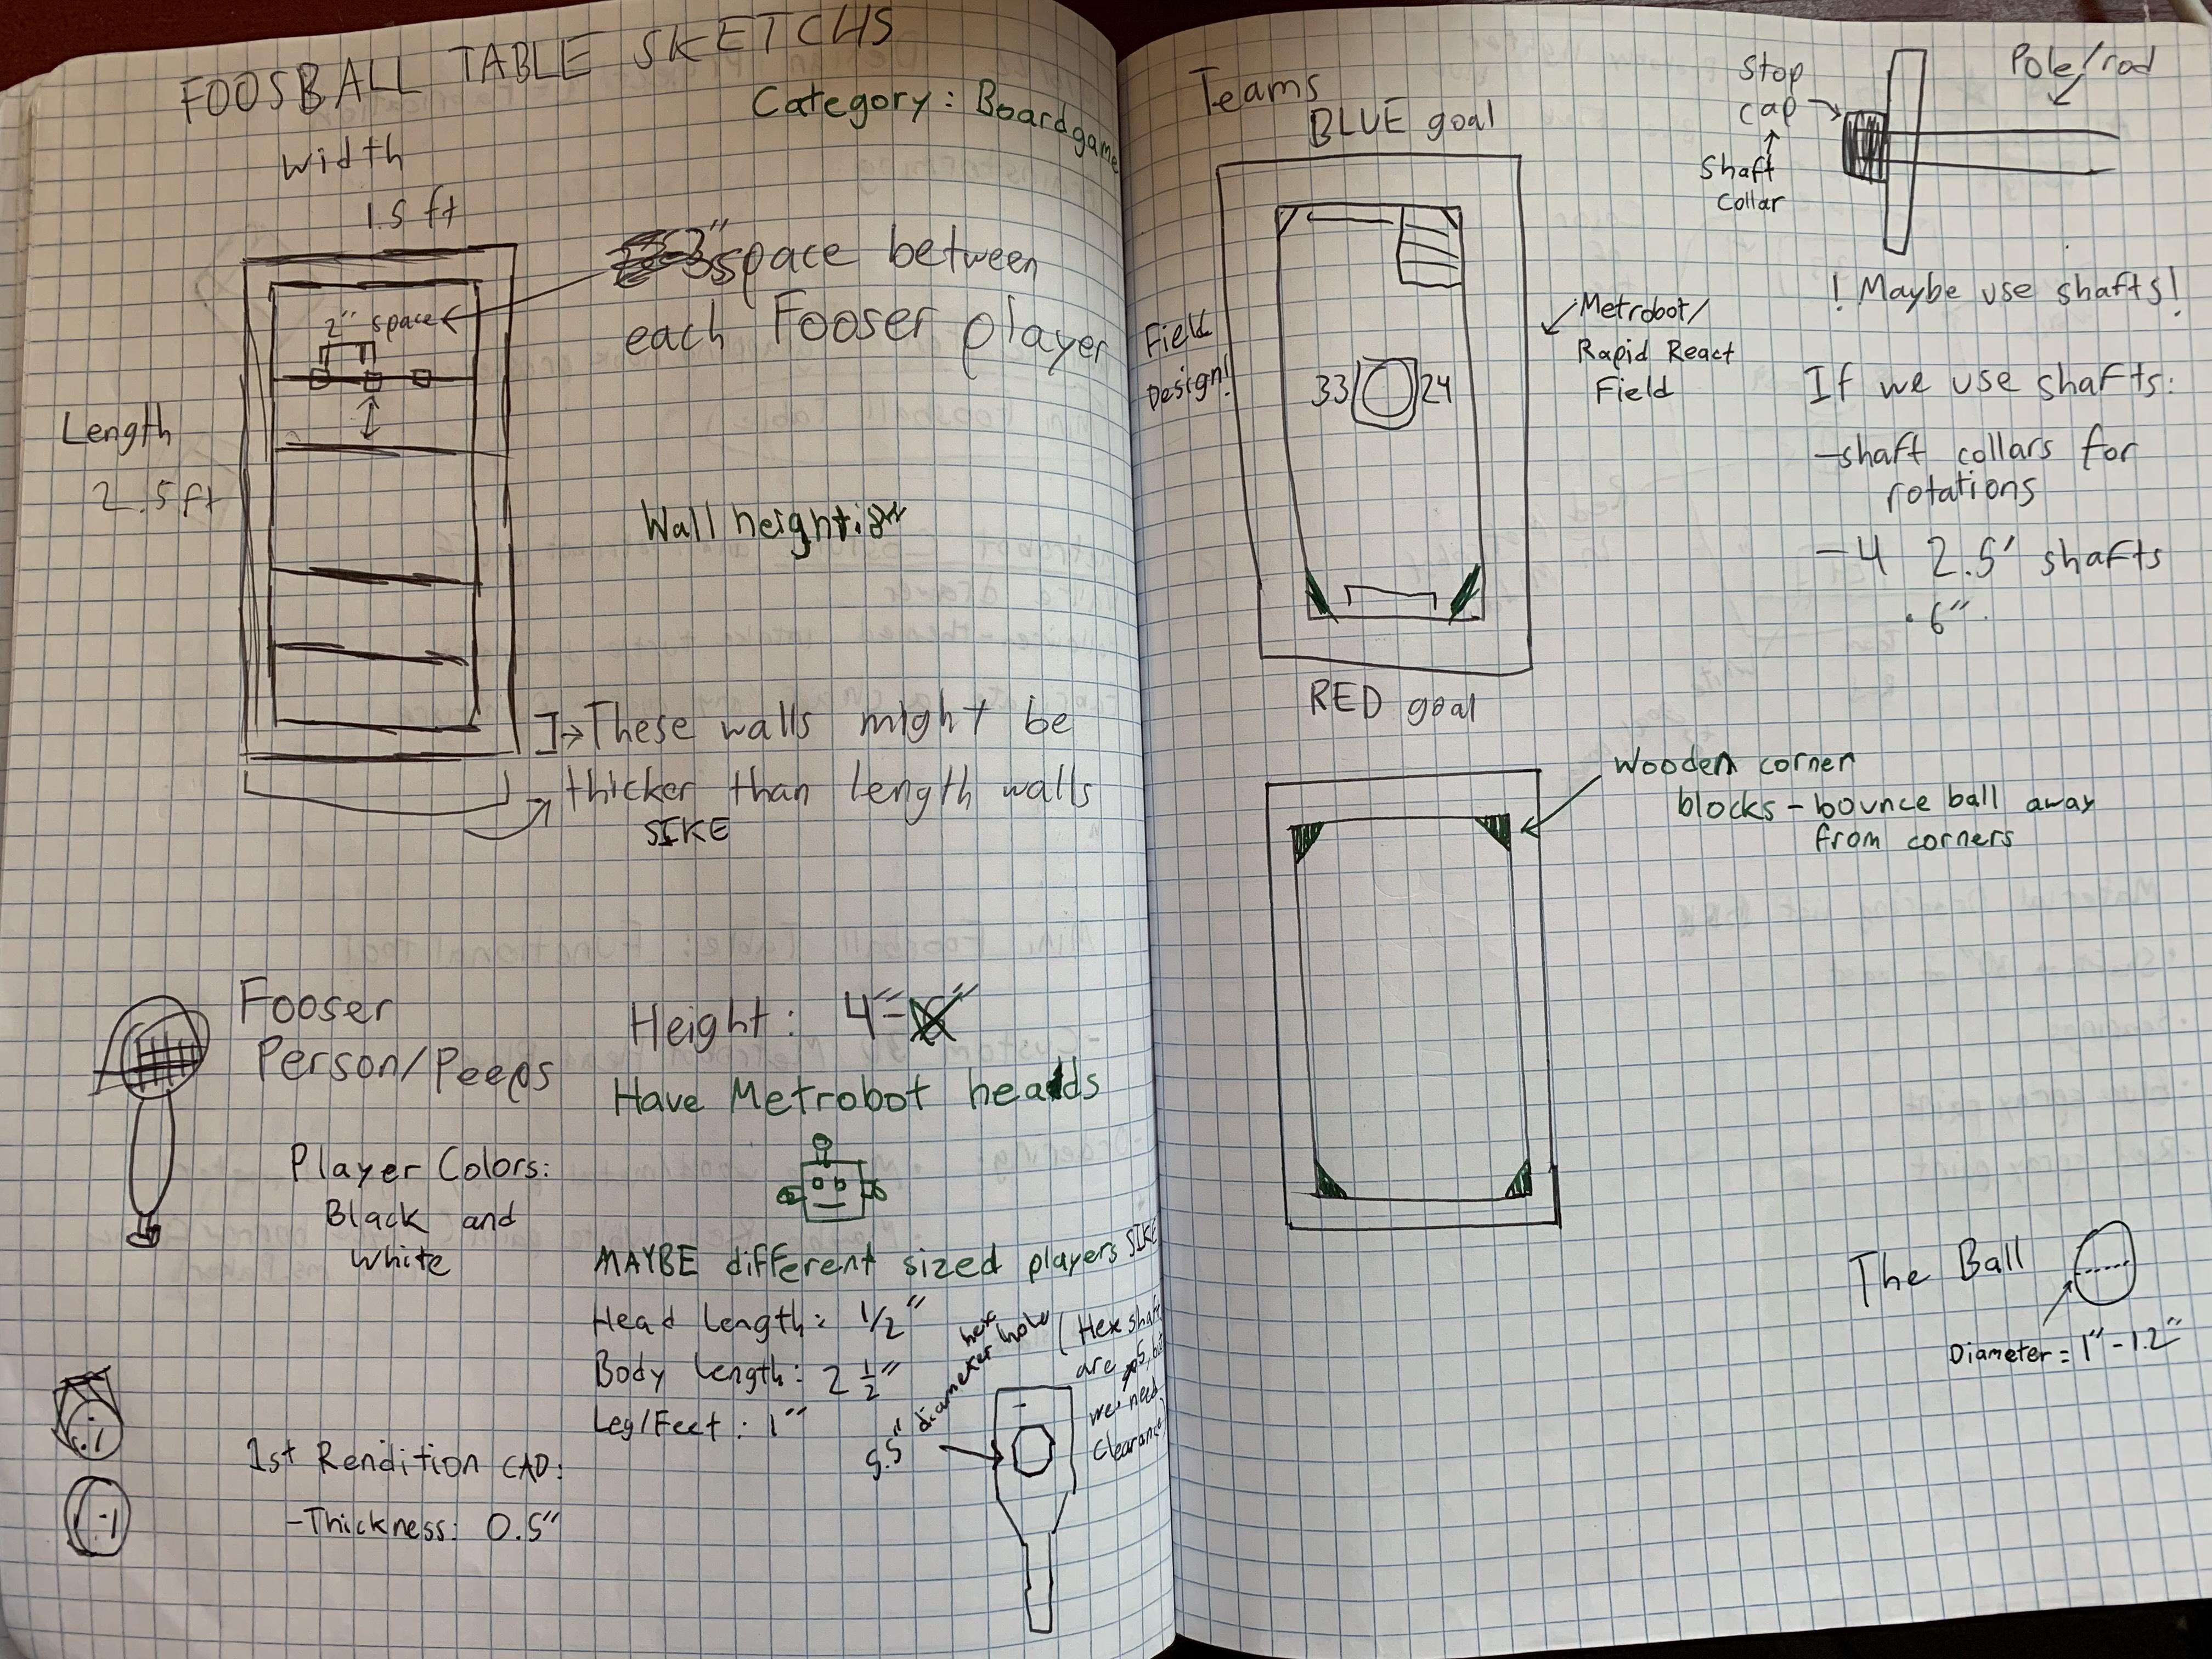 FOOSBALL TABLE SKETCHS
Category: Boardgame
width
1.5 ft
3" space between
each Fooser player
2" space
Length
2.5ft
Wall height:
These walls might be
thicker than length walls
SIKE
Fooser
Person/Peeps
Height: 4"
Have Metrobot heads
Player Colors:
Black and
white
MAYBE different sized players SIKE
Head Length: 1/2"
Body Length: 2 1/2"
Leg/Feet: 1"
diameter
hex
hole
(Hex shafts
are .5, but
we need
clearance)
1st Rendition CAD:
-Thickness: 0.5"
Teams
BLUE goal
Field
Design!
33 24
Metrobot/
Rapid React
Field
RED goal
Stop
cap
Shaft
Collar
Pole/rod
! Maybe use shafts!
If we use shafts:
-shaft collars for
rotations
-4 2.5' shafts
• 6"
Wooden corner
blocks - bounce ball away
from corners
The Ball
Diameter = 1" - 1.2"